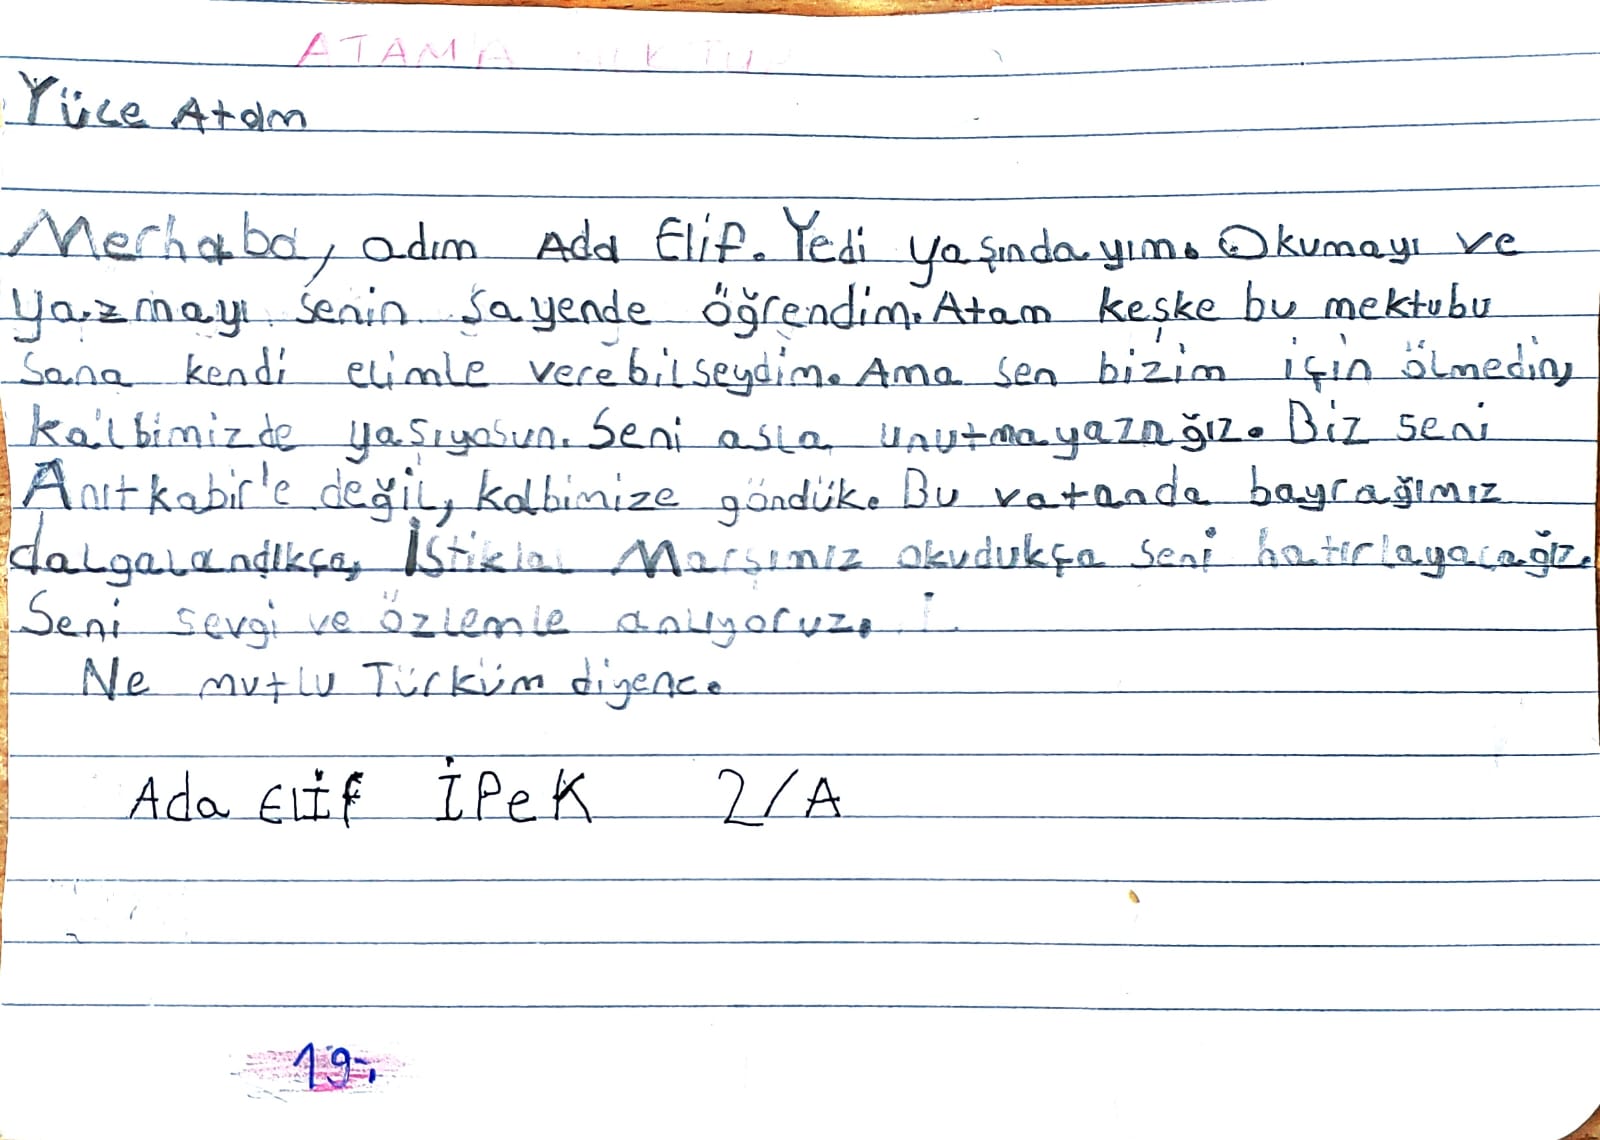 ATAMA MEKTUP
Yüce Atam
Merhaba, adım Ada Elif. Yedi yaşındayım. Okumayı ve
yazmayı senin sayende öğrendim. Atam keşke bu mektubu
sana kendi elimle verebilseydim. Ama sen bizim için ölmedin,
kalbimizde yaşıyosun. Seni asla unutmayazağız. Biz seni
Anıtkabir'e değil, kalbimize göndük. Bu vatanda bayrağımız
dalgalandıkça, İstiklal Marşımız okudukça seni hatırlayacağız.
Seni sevgi ve özlemle anlıyoruz.
Ne mutlu Türküm diyene.
Ada Elif İPEK 2/A
19.